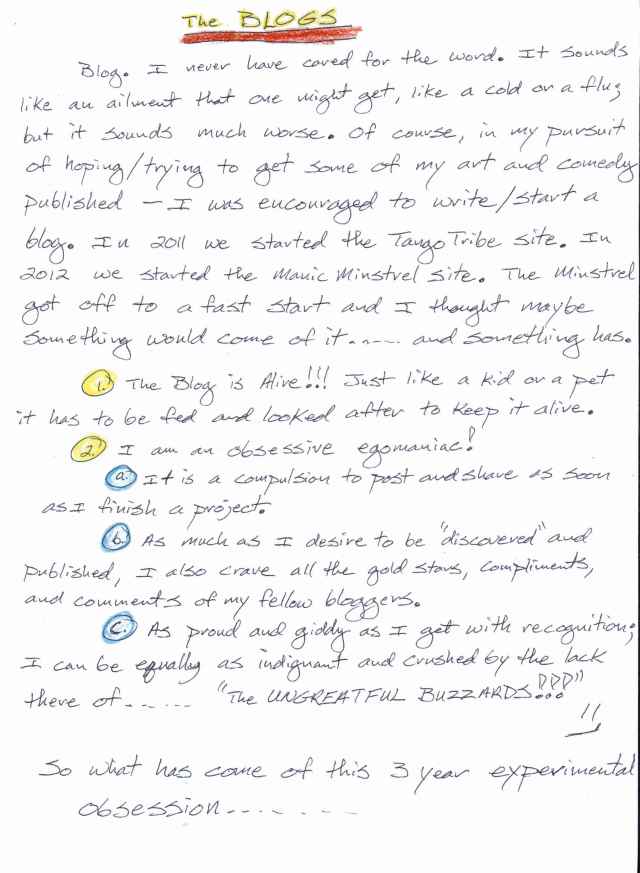 The BLOGS
Blog. I never have cared for the word. It sounds
like an ailment that one might get, like a cold or a flu;
but it sounds much worse. Of course, in my pursuit
of hoping/trying to get some of my art and comedy
published — I was encouraged to write/start a
blog. In 2011 we started the TangoTribe site. In
2012 we started the Manic Minstrel site. The Minstrel
got off to a fast start and I thought maybe
something would come of it..... and something has.
1. The Blog is Alive!!! Just like a kid or a pet
it has to be fed and looked after to keep it alive.
2. I am an obsessive egomaniac!
a. It is a compulsion to post and share as soon
as I finish a project.
b. As much as I desire to be "discovered" and
published, I also crave all the gold stars, compliments,
and comments of my fellow bloggers.
c. As proud and giddy as I get with recognition;
I can be equally as indignant and crushed by the lack
there of...... "The UNGREATFUL BUZZARDS!!!"
So what has come of this 3 year experimental
obsession........